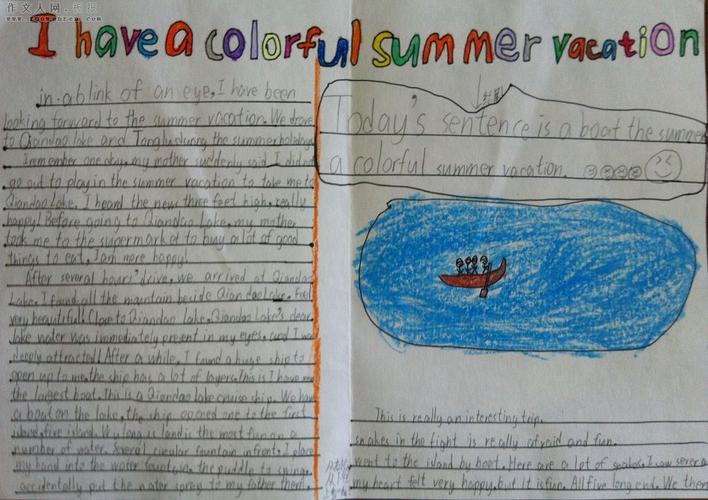 作文人网
www.zuowenren.com
I have a colorful summer vacation
in a blink of an eye, I have been
looking forward to the summer vacation. We drove
to Qiandao lake and Tonglu during the summer holidays
I remember one day, my mother suddenly said I did not
go out to play in the summer vacation to take me to
Qiandao Lake. I heard the new three feet high, really
happy! Before going to Qiandao Lake, my mother
took me to the supermarket to buy a lot of good
things to eat, I am more happy!
After several hours' drive, we arrived at Qiandao
Lake. I found all the mountain beside Qiandao Lake. Feel
very beautiful! Close to Qiandao lake. Qiandao Lake's clear
lake water was immediately present in my eyes, and I was
deeply attracted! After a while, I found a huge ship to
open up to me, the ship has a lot of layers. This is I have
the largest boat. This is a Qiandao Lake cruise ship. We ha
a boat on the lake, the ship opened one to the first
island, five island. Wu long island is the most fun on a
number of water. Several circular fountain in front. I place
my hand into the water fountain, the puddle to spring,
accidentally put the water spray to my father then
Today's sentence is a boat the summer
a colorful summer vacation.
This is really an interesting trip.
snakes in the fight is really afraid and fun.
went to the island by boat. Here are a lot of snakes. I saw severa
my heart felt very happy, but it is fun. All five long end. We then